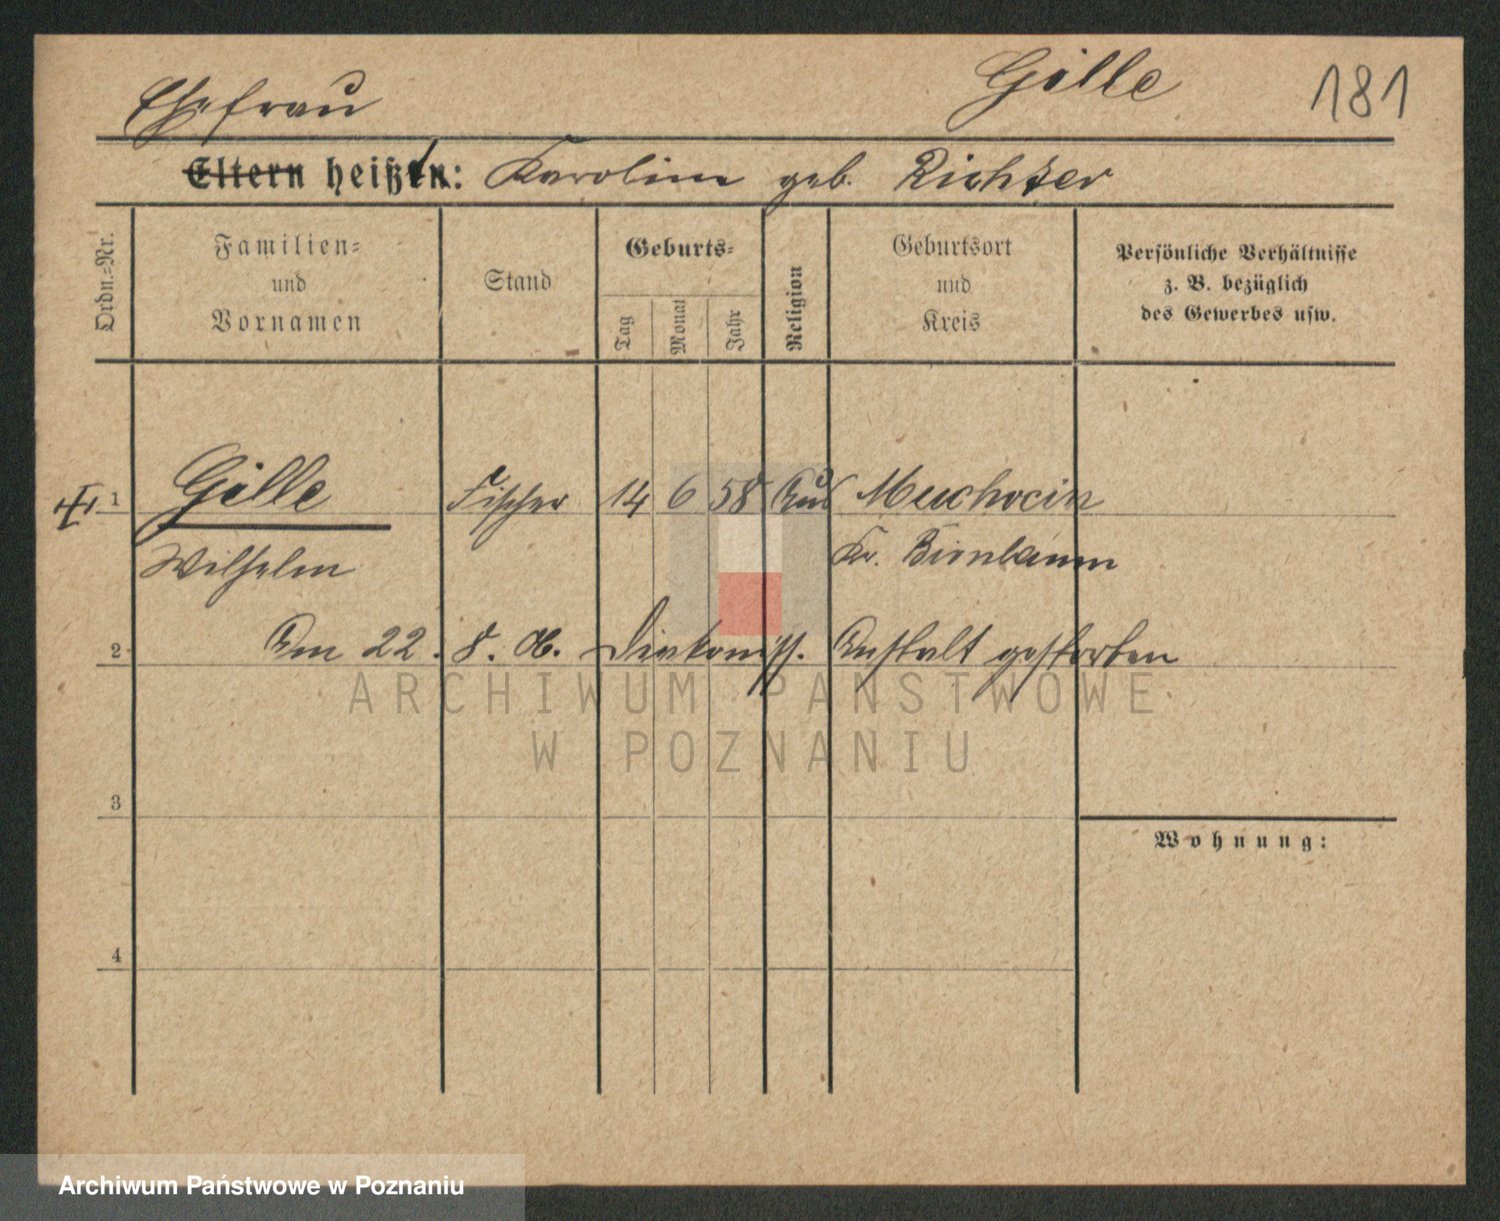 Gille 181
Ehefrau
Eltern heißen: Karoline geb. Richter
Ordn.=Nr.
Familien=
und
Vornamen
Stand
Geburts=
Tag
Monat
Jahr
Religion
Geburtsort
und
Kreis
Persönliche Verhältnisse
z. B. bezüglich
des Gewerbes usw.
1 Gille Fischer 14 6 58 Muchocin
Wilhelm Kr. Birnbaum
2 Am 22. 8. 06. Diakoniss. Anstalt gestorben
ARCHIWUM PAŃSTWOWE
W POZNANIU
3
Wohnung:
4
Archiwum Państwowe w Poznaniu